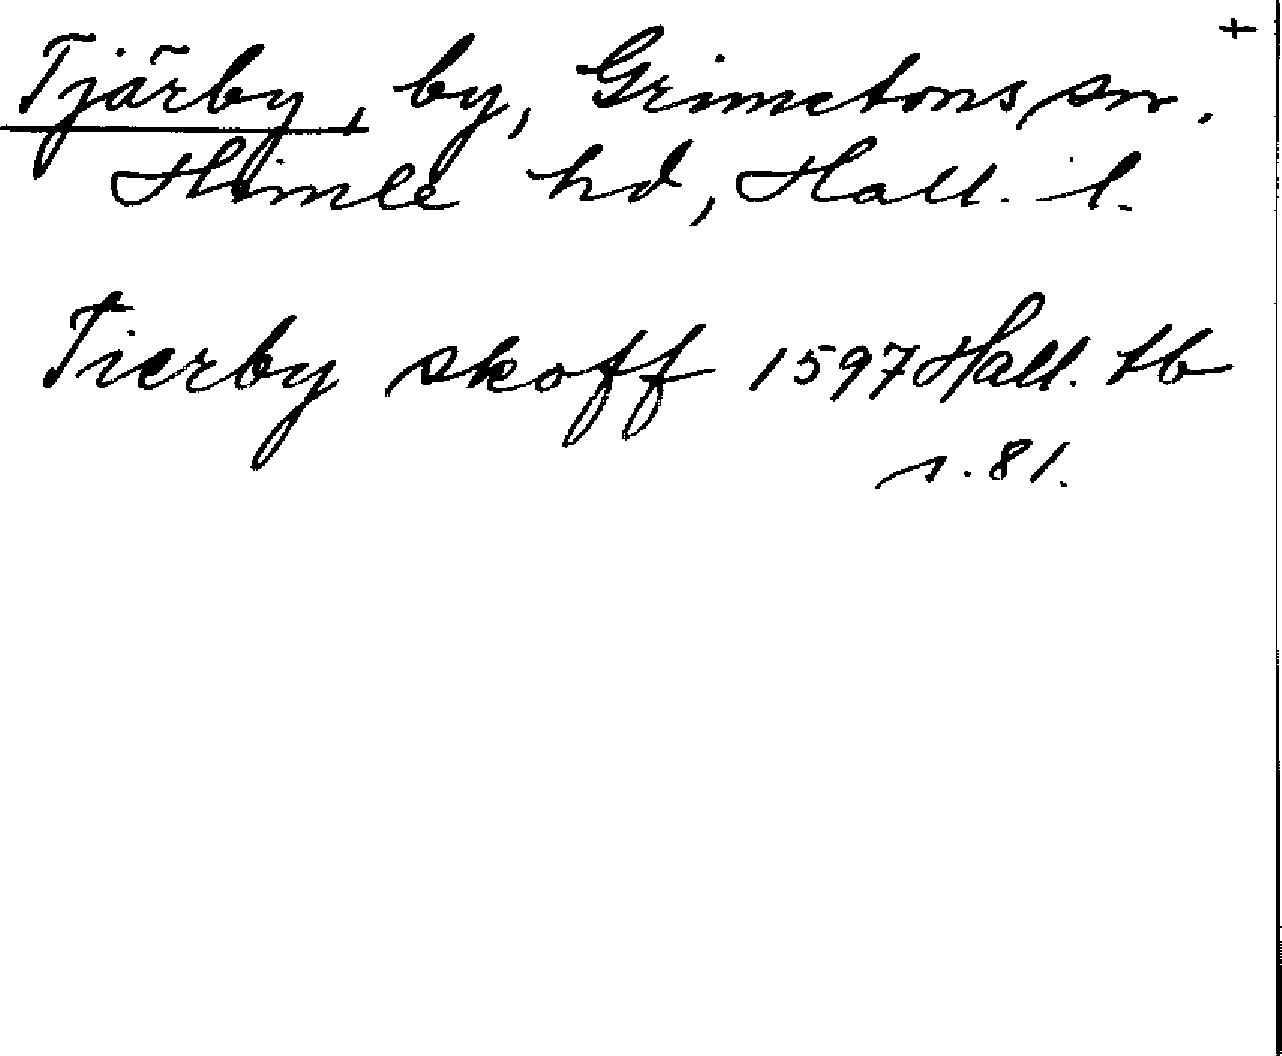 +
Tjärby, by, Grimetons sn.
Himle hd, Hall. l.
Tierby skoff 1597 Hall. tb
s. 81.